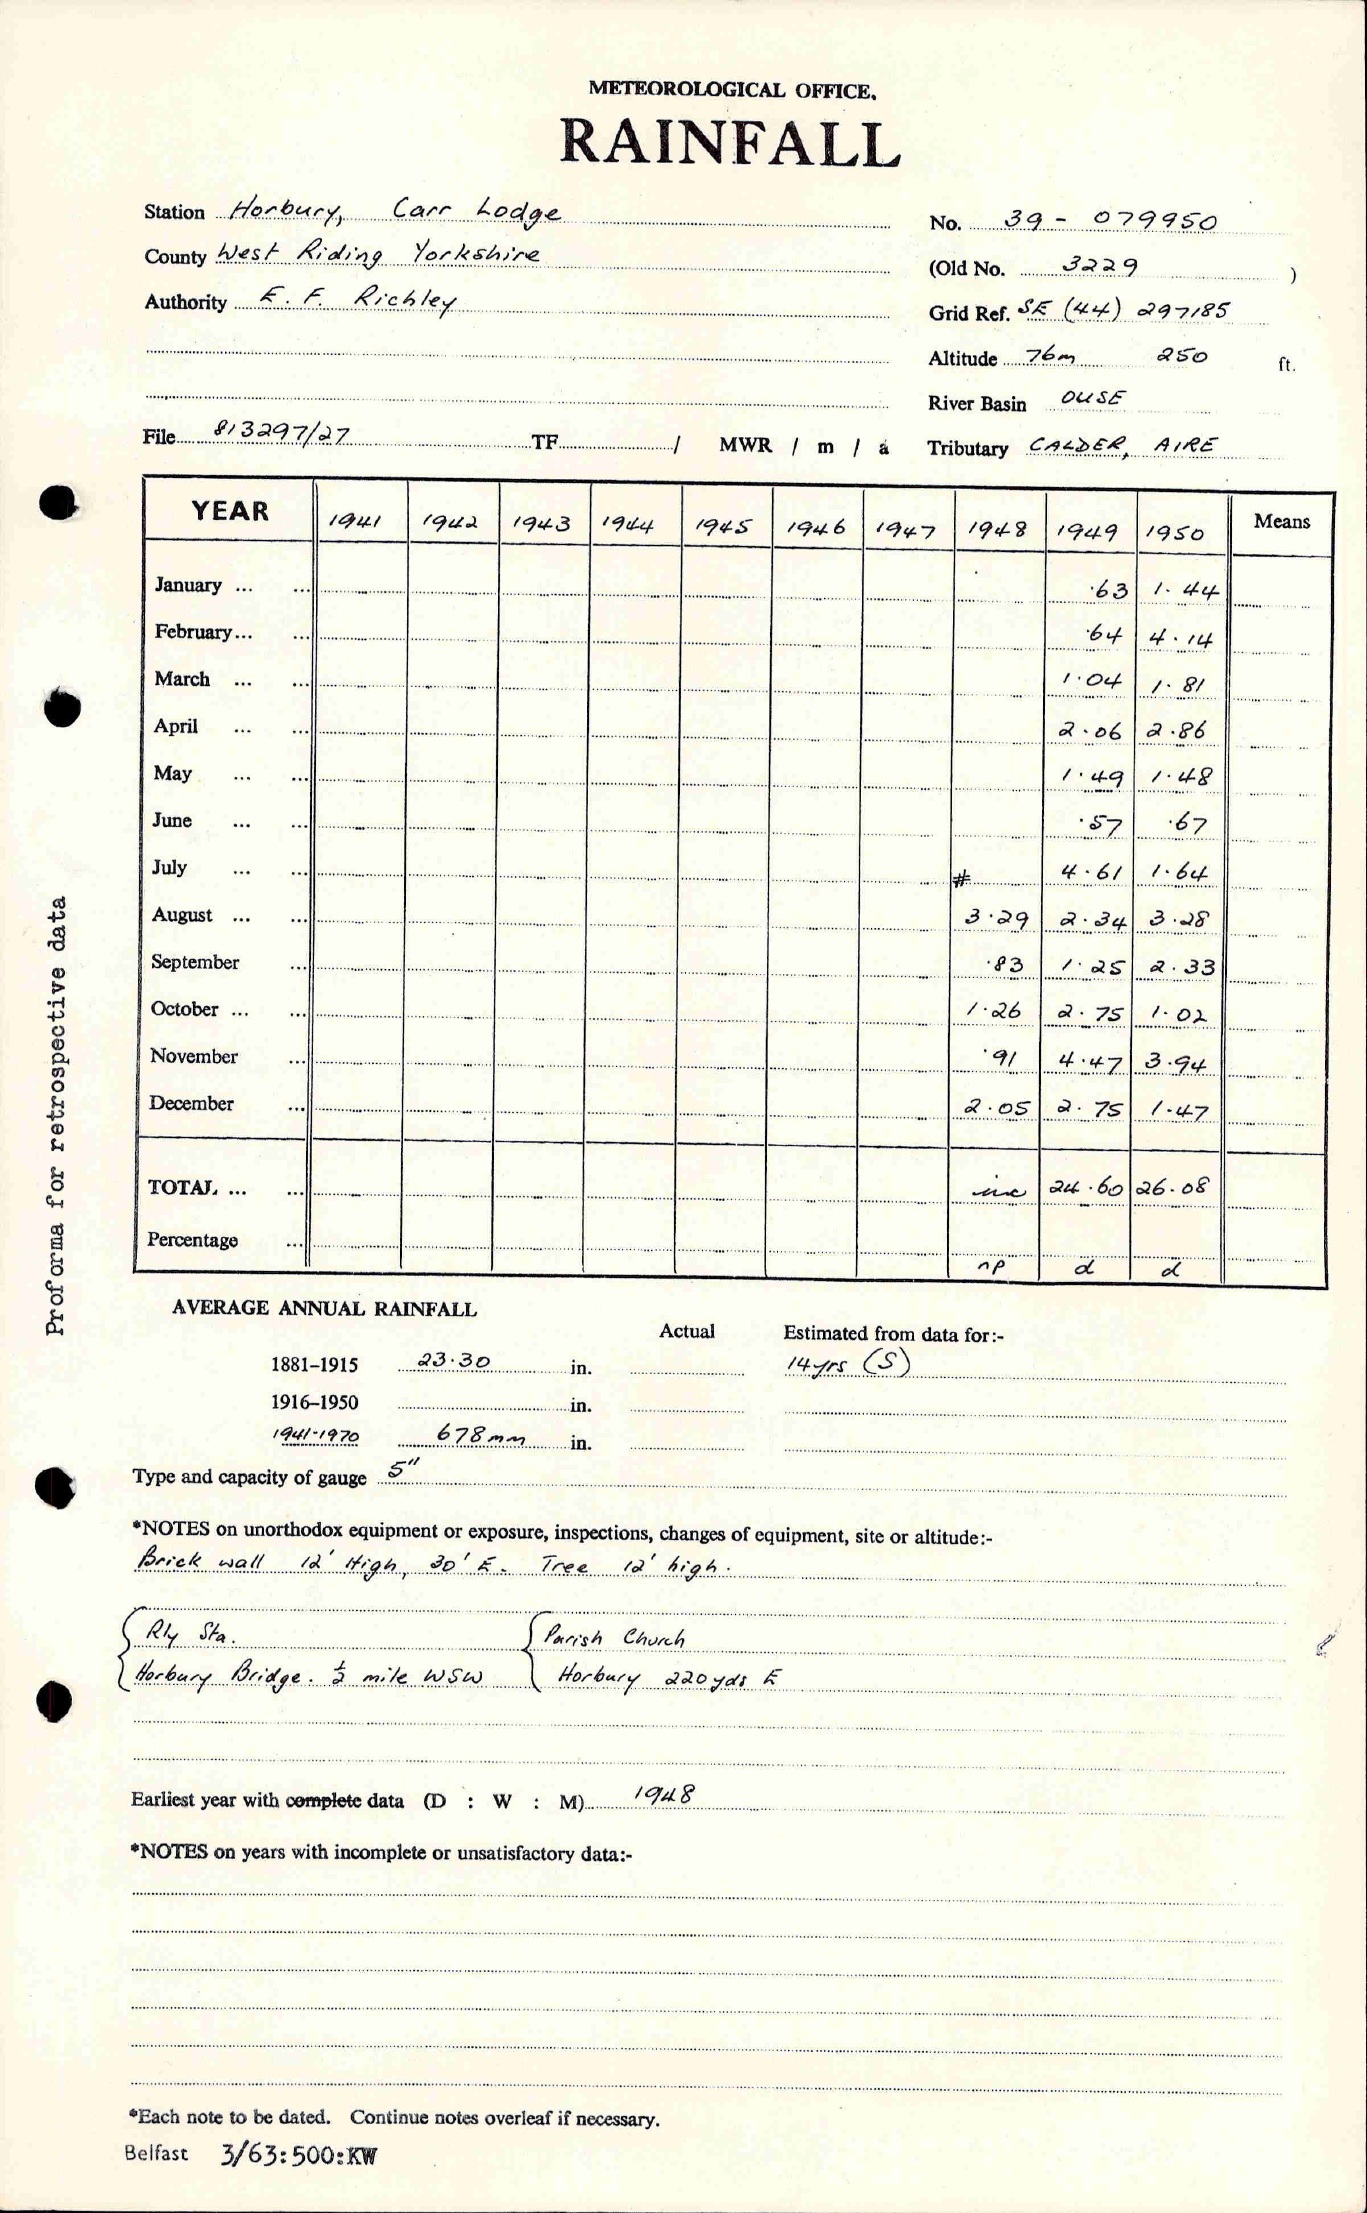 METEOROLOGICAL OFFICE.
RAINFALL
Station Horbury, Carr Lodge
No. 39 - 079950
County West Riding Yorkshire
(Old No. 3229 )
Authority E. F. Richley
Grid Ref. SE (44) 297185
Altitude 76m 250 ft.
River Basin OUSE
File 813297/27 TF / MWR / m / a Tributary CALDER, AIRE
YEAR 1941 1942 1943 1944 1945 1946 1947 1948 1949 1950 Means
January ... ... .63 1.44
February... ... .64 4.14
March ... ... 1.04 1.81
April ... ... 2.06 2.86
May ... ... 1.49 1.48
June ... ... .57 .67
July ... ... # 4.61 1.64
August ... ... 3.29 2.34 3.28
September ... .83 1.25 2.33
October ... ... 1.26 2.75 1.02
November ... .91 4.47 3.94
December ... 2.05 2.75 1.47
TOTAL ... ... inc 24.60 26.08
Percentage ...
np d d
Proforma for retrospective data
AVERAGE ANNUAL RAINFALL
Actual Estimated from data for:-
1881-1915 23.30 in. 14yrs (S)
1916-1950 in.
1941-1970 678mm in.
Type and capacity of gauge 5"
*NOTES on unorthodox equipment or exposure, inspections, changes of equipment, site or altitude:-
Brick wall 12' High, 30' E. Tree 12' high.
Rly Sta. Parish Church
Horbury Bridge. ½ mile WSW Horbury 220yds E
Earliest year with complete data (D : W : M) 1948
*NOTES on years with incomplete or unsatisfactory data:-
*Each note to be dated. Continue notes overleaf if necessary.
Belfast 3/63:500:KW